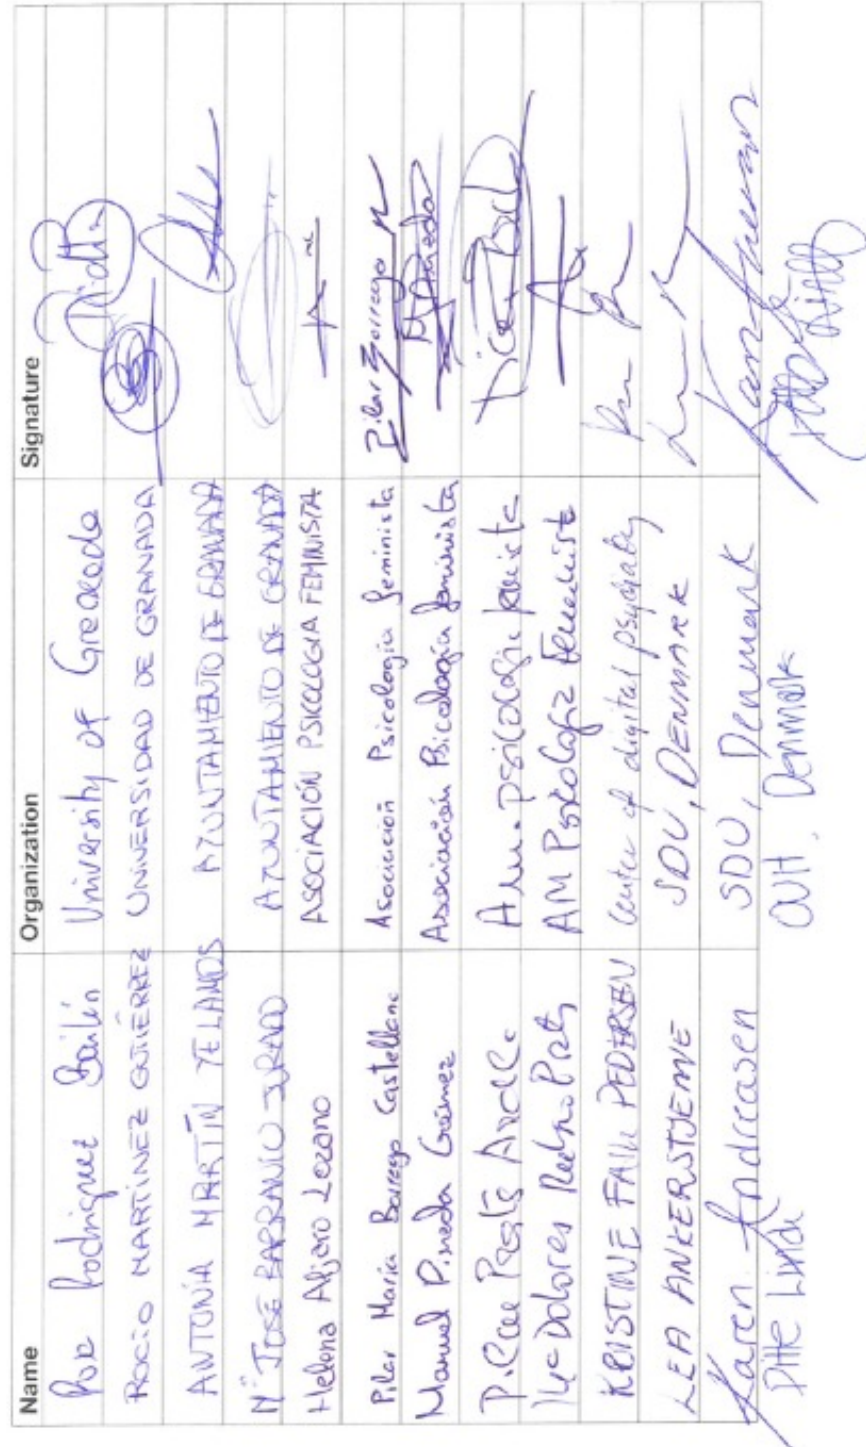 Name Organization Signature
Rodriguez Bailén University of Granada
ROCÍO MARTÍNEZ GUTIÉRREZ UNIVERSIDAD DE GRANADA
ANTONIA MARTÍN TELAMOS AYUNTAMIENTO DE GRANADA
Mª JOSÉ BARRANCO JURADO AYUNTAMIENTO DE GRANADA
Helena Aljaro Lozano ASOCIACIÓN PSICOLOGIA FEMINISTA
Pilar María Borrego Castellano Asociación Psicología feminista Pilar Borrego
Manuel Pineda Gámez Asociación Psicología feminista M Pineda
psicología
Mª Dolores AM Psicología Feminista
KRISTINE FALK PEDERSEN Center of digital psychiatry
LEA ANKERSTJERNE SDU, DENMARK
Karen Andreasen SDU, Denmark
Ditte Linde OUH, Denmark